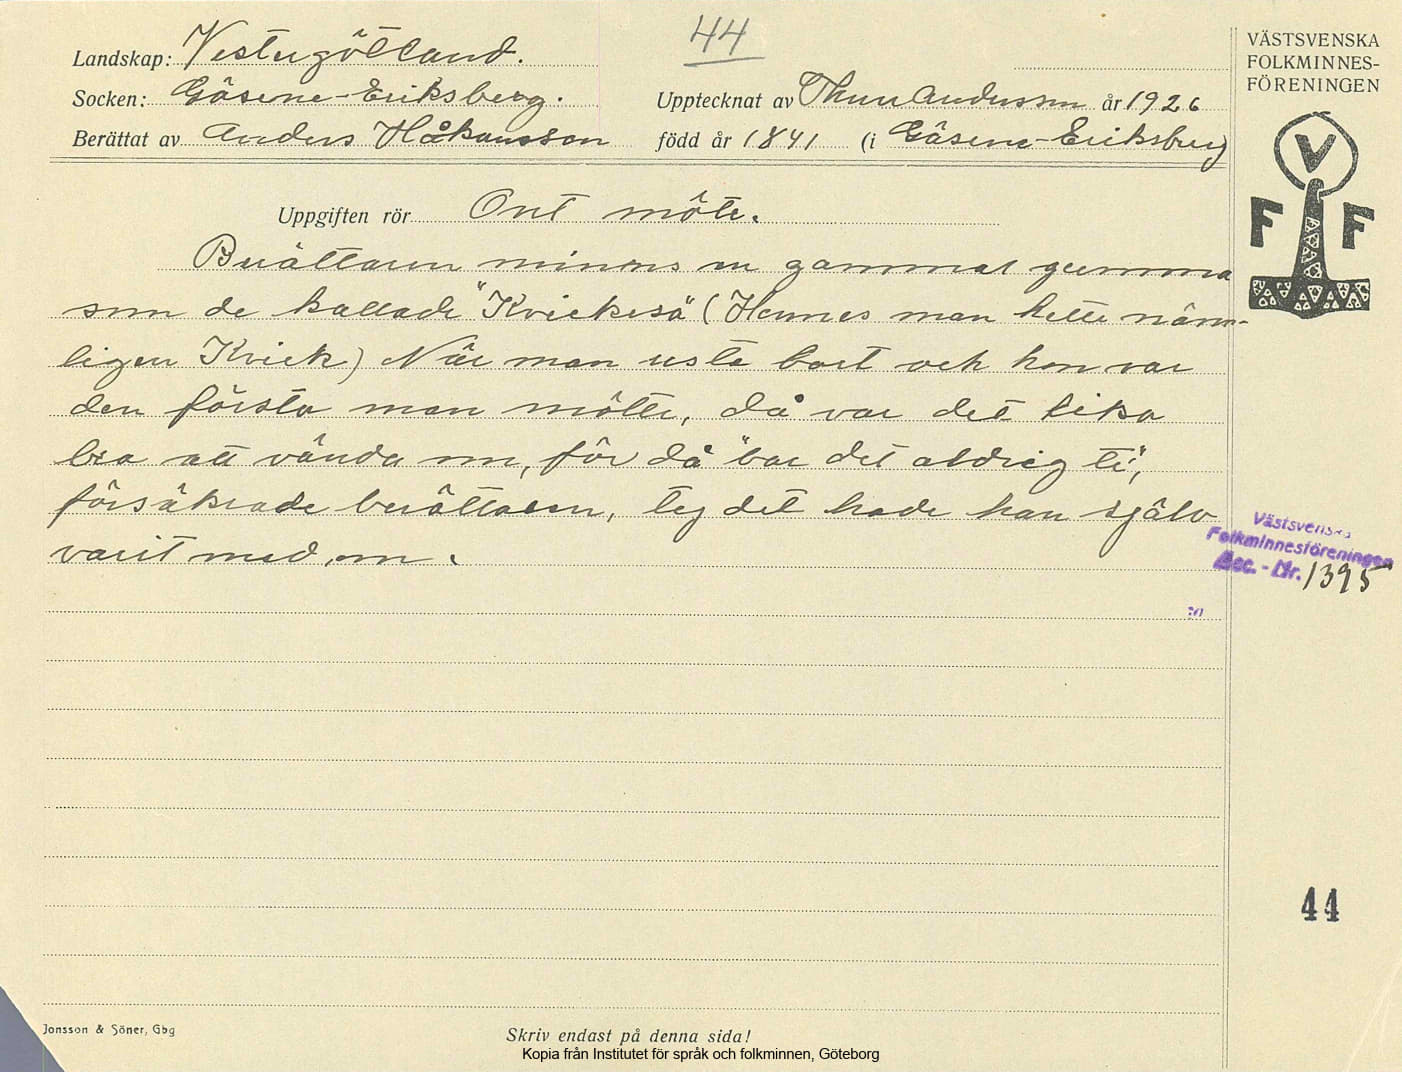 44
Landskap: Vestergötland.
Socken: Gäsene-Eriksberg.
Upptecknat av Thure Andersson år 1926
Berättat av Anders Håkansson född år 1841 (i Gäsene-Eriksberg
VÄSTSVENSKA
FOLKMINNES-
FÖRENINGEN
V
F F
Uppgiften rör Ont möte.
Berättaren minns en gammal gumma
som de kallade "Kvickesä" (Hennes man hette näm-
ligen Kvick) När man reste bort och hon var
den första man mötte, då var det lika
bra att vända om, för då "bar det aldrig te",
försäkrade berättaren, tej det hade han själv
varit med om.
Västsvenska
Folkminnesföreningen
Acc. - Nr. 1395
44
Jonsson & Söner, Gbg
Skriv endast på denna sida!
Kopia från Institutet för språk och folkminnen, Göteborg